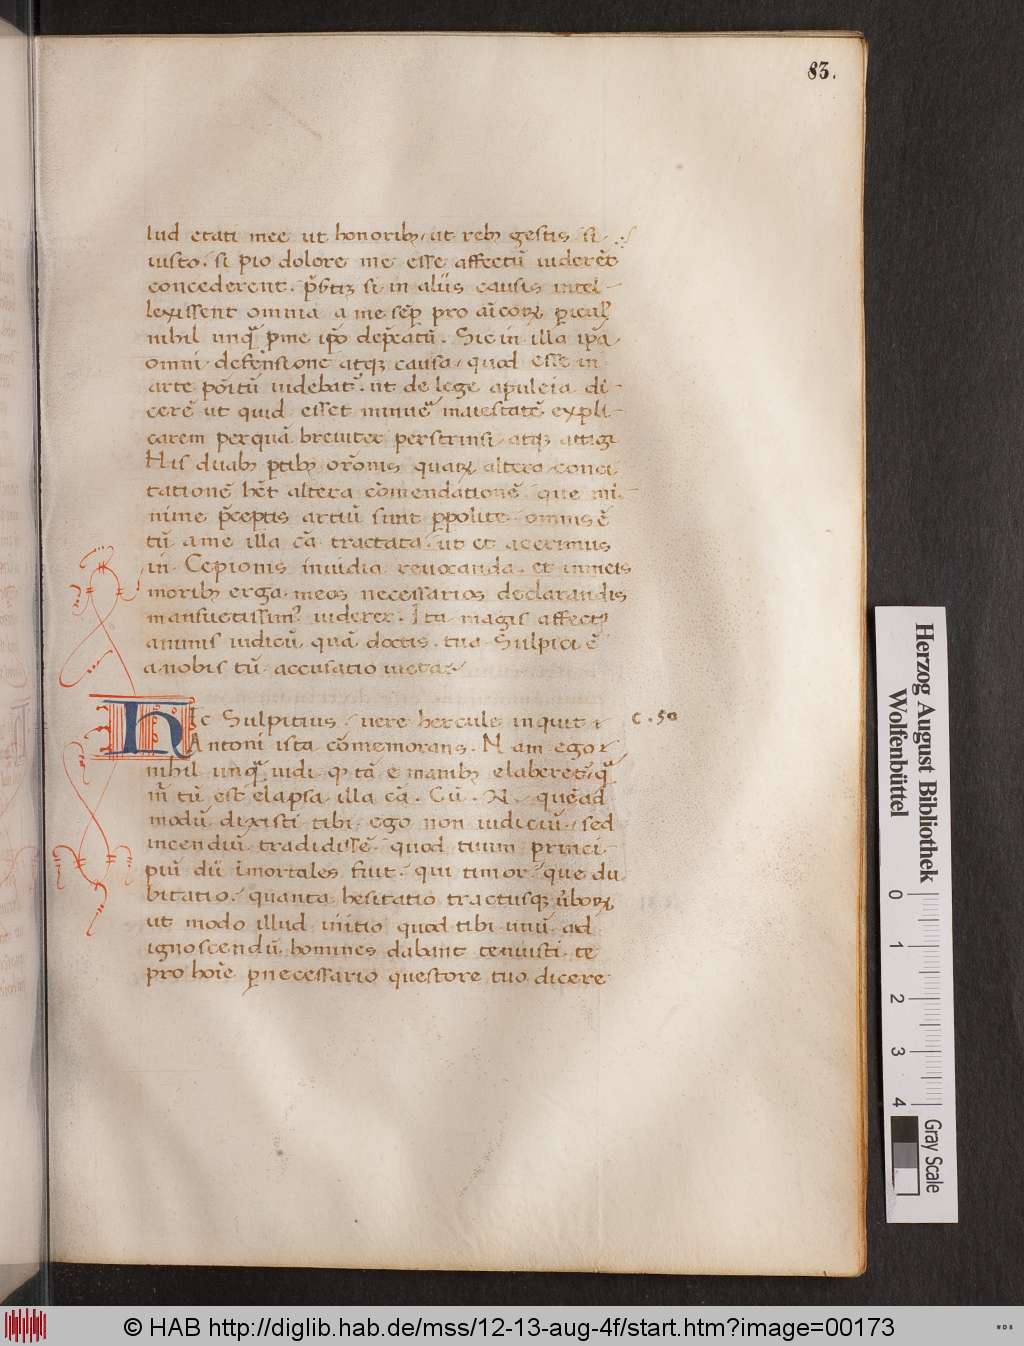 83.
lud etati mee ut honoribꝫ, ut rebꝫ gestis, si
iusto, si pio dolore me esse affectũ uiderẽt
concederent. p̃st̃ꝫ si in aliis causis intel-
lexissent omnia a me sep̃ pro aĩcoꝝ pericul'
nihil unq̃ pro me ip̃o dep̃catũ. Sic in illa ip̃a
omni defensione atqꝫ causa, quod esse in
arte põitũ uidebat², ut de lege apuleia di-
cerẽ ut quid esset minue² maiestatẽ expli-
carem perquã breuiter perstrinsi atqꝫ attigi
His duabꝫ ꝑtibꝫ or̃onis quaꝝ altera conci
tationẽ hẽt altera cõmendationẽ que mi
nime p̃ceptis artiũ sunt ꝑpolite omnis ẽ
tũ a me illa cã tractata, ut et acerrimus
in Cepionis inuidia reuocanda, et in meis
moribꝫ erga meos necessarios declarandis
mansuetissimꝰ uiderer. Ita magis affectis
animis iudicũ quã doctis, tua Sulpici ẽ
a nobis tũ accusatio uicta.
HIc Sulpitius, uere hercule inquit
Antoni ista cõmemoras. Nam ego
c. 50
nihil unq̃ uidi, qꝫ tã e manibꝫ elaberet², q̃
m̃ tũ est elapsa illa cã. Cũ. N. quẽad
modũ dixisti tibi ego non iudiciũ, sed
incendiũ tradidissẽ quod tuum princi-
piũ dii ĩmortales fuit, qui timor, que du
bitatio, quanta hesitatio tractusqꝫ ũboꝝ
ut modo illud initio quod tibi unũ ad
ignoscendũ homines dabant tenuisti te
pro hoĩe ꝑnecessario questore tuo dicere
Herzog August Bibliothek
Wolfenbüttel
0 1 2 3 4
Gray Scale
© HAB http://diglib.hab.de/mss/12-13-aug-4f/start.htm?image=00173